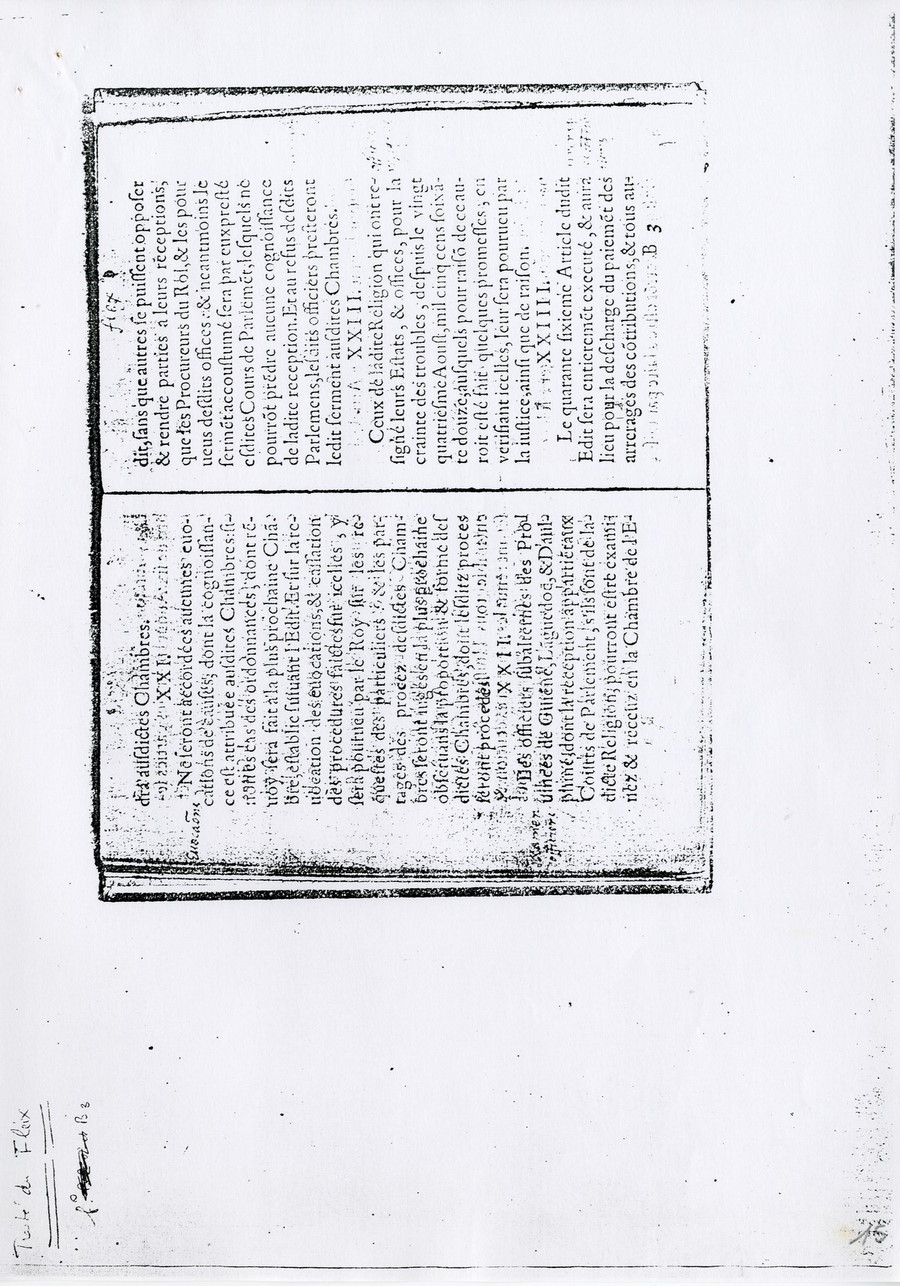 Traité du Fleix
fº B 3
dra ausdictes Chambres.
XXI.
Euocatiõ
Ne seront accordées aucunes euo-
cations de causes, dont la cognoissan-
ce est attribuée ausdites Chambres: si-
es cas des ordonnances, dont ré-
uoy sera fait à la plus prochaine Chã-
bre, establie suiuant l'Edit. Et sur la re-
uocation des euocations, & cassation
des procedures faictes sur icelles, y
sera pourueu par le Roy sur les re-
questes des particuliers: & les par-
tages des procez desdictes Cham-
bres seront iugés en la plus prochaine
obseruant la proportion & forme des
dictes Chambres, dont lesditz proces
seront procedés.
XXII.
Examen
officiers
Des officiers subalternes des Pro
uinces de Guiéne, Láguedoc, & Daul-
phiné, dont la reception appartiét aux
Courts de Parlement, s'ils sont de la-
dicte Religion, pourront estre exami-
nez & receuz en la Chambre de l'E-
flex
dit, sans que autres se puissent opposer
& rendre parties a leurs réceptions,
que les Procureurs du Roi, & les pour
ueus desdits offices: & neantmoins le
sermét accoustumé sera par eux presté
esdites Cours de Parlemét, lesquels ne
pourrõt prédre aucune cognoissance
de ladite reception. Et au refus desdits
Parlemens, lesdits officiers presteront
ledit serment ausdites Chambres.
XXIII.
Ceux de ladite Religion qui ont re-
signé leurs Estats, & offices, pour la
crainte des troubles, despuis le vingt
quatriesme Aoust, mil cinq cens soixã-
te douze, ausquels pour raisõ de ce au-
roit esté fait quelques promesses, en
verifiant icelles, leur sera pourueu par
la iustice, ainsi que de raison.
XXIIII.
Le quarante sixiemé Article dudit
Edit sera entieremét executé, & aura
lieu pour la descharge du paiemét des
arrerages des cõtributions, & tous au-
B 3
15